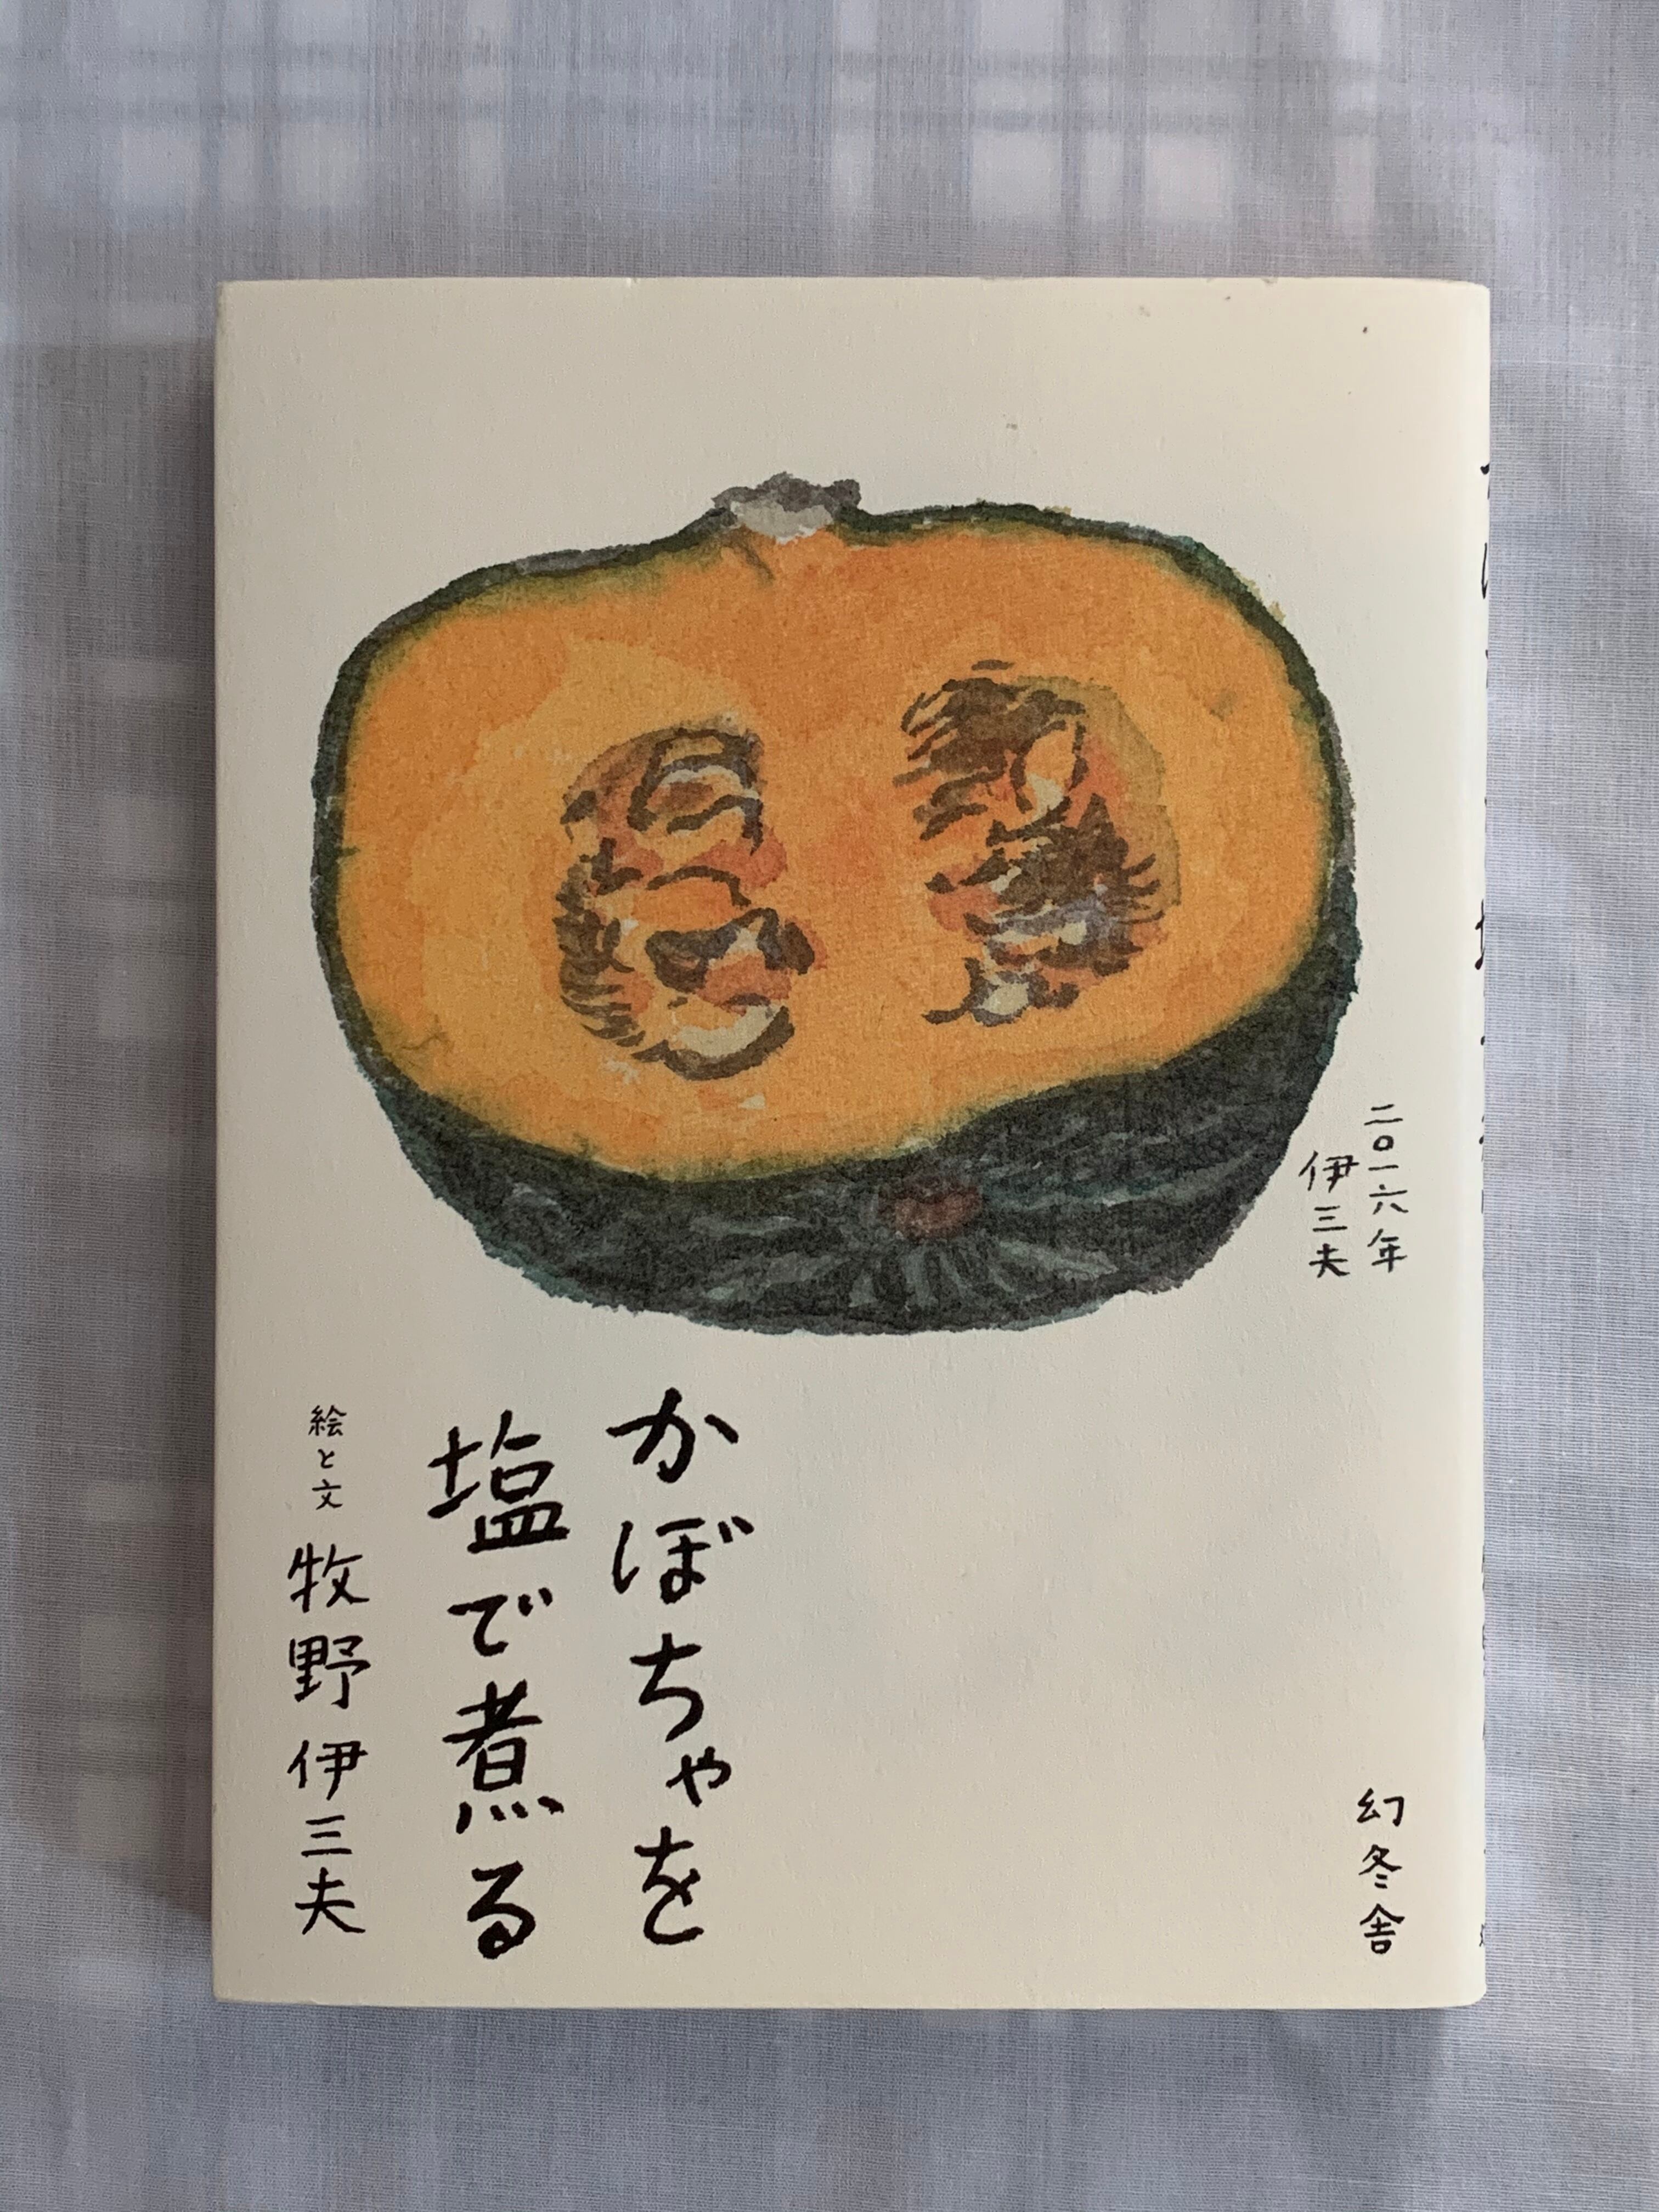 二〇一六年
伊三夫
かぼちゃを
塩で煮る
絵と文 牧野伊三夫
幻冬舎